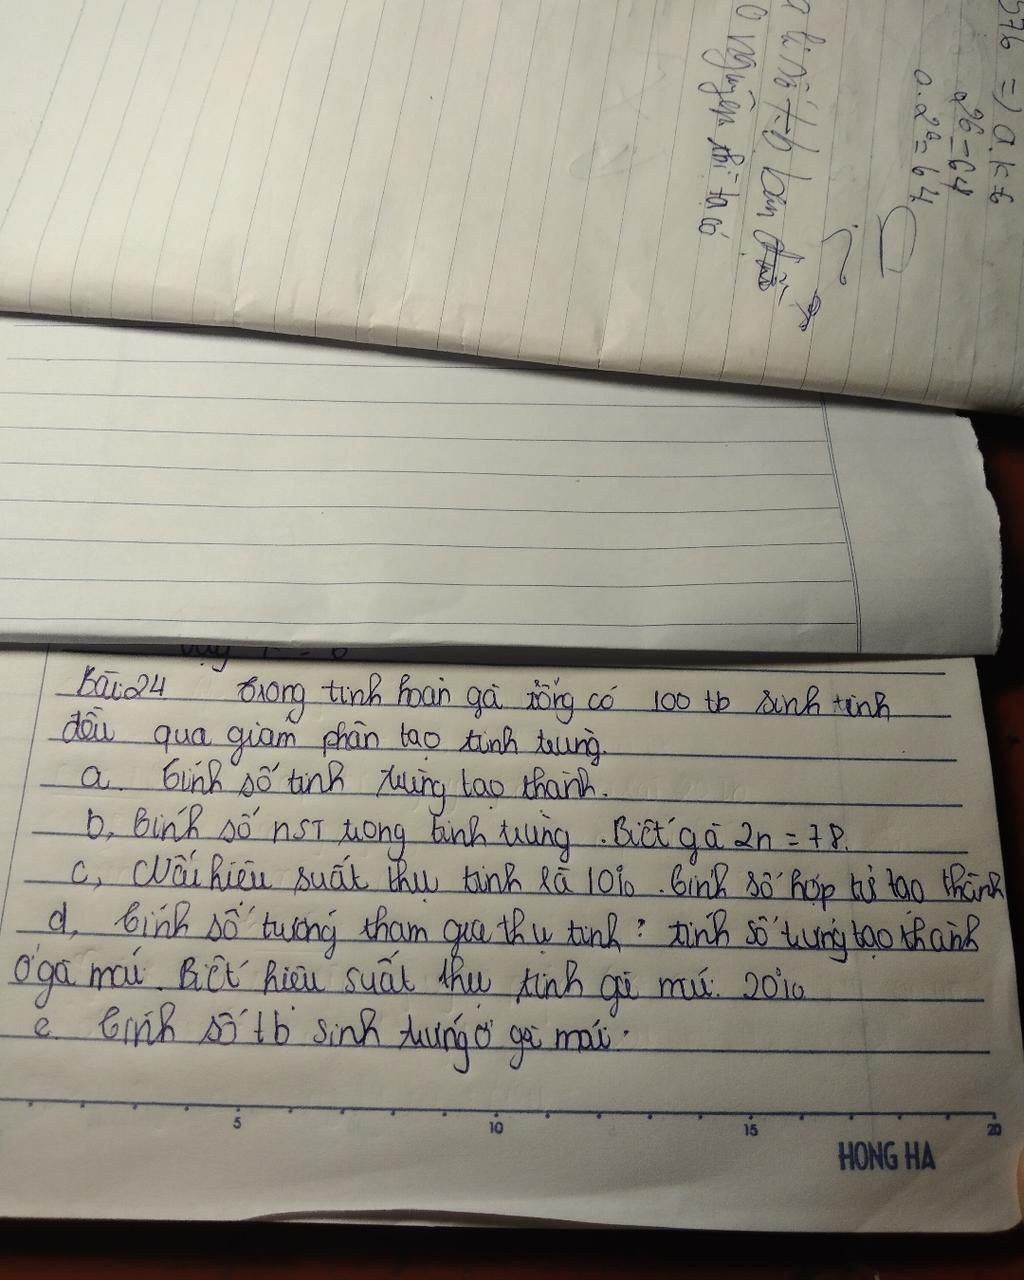 576 => a.k=6
26=64
a.2⁶=64
nguyên thì ta có
Bài 24 Trong tinh hoàn gà trống có 100 tb sinh tinh
đều qua giảm phân tạo tinh trùng.
a. Tính số tinh trùng tạo thành.
b, Tính số NST trong tinh trùng. Biết gà 2n = 78.
c, Với hiệu suất thụ tinh là 10%. Tính số hợp tử tạo thành
d, Tính số trứng tham gia thụ tinh? tính số trứng tạo thành
ở gà mái. Biết hiệu suất thụ tinh gà mái. 20%
e. Tính số tb sinh trứng ở gà mái.
5 10 15 20
HONG HA